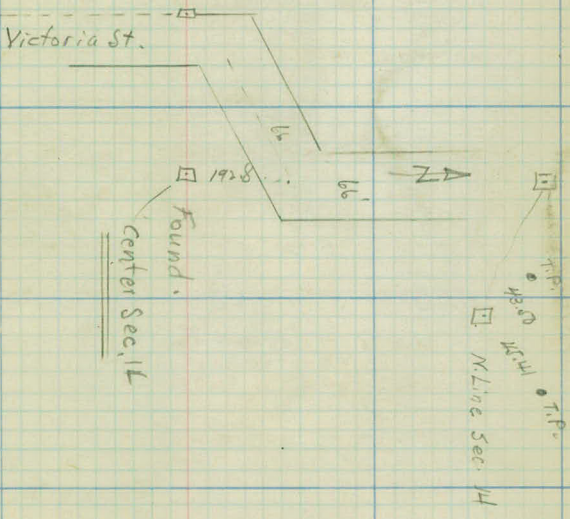 Victoria St.
66'
66'
N
1928
Found.
Center Sec. 14
T.P.
43.50
45.41
T.P.
N. Line Sec. 14